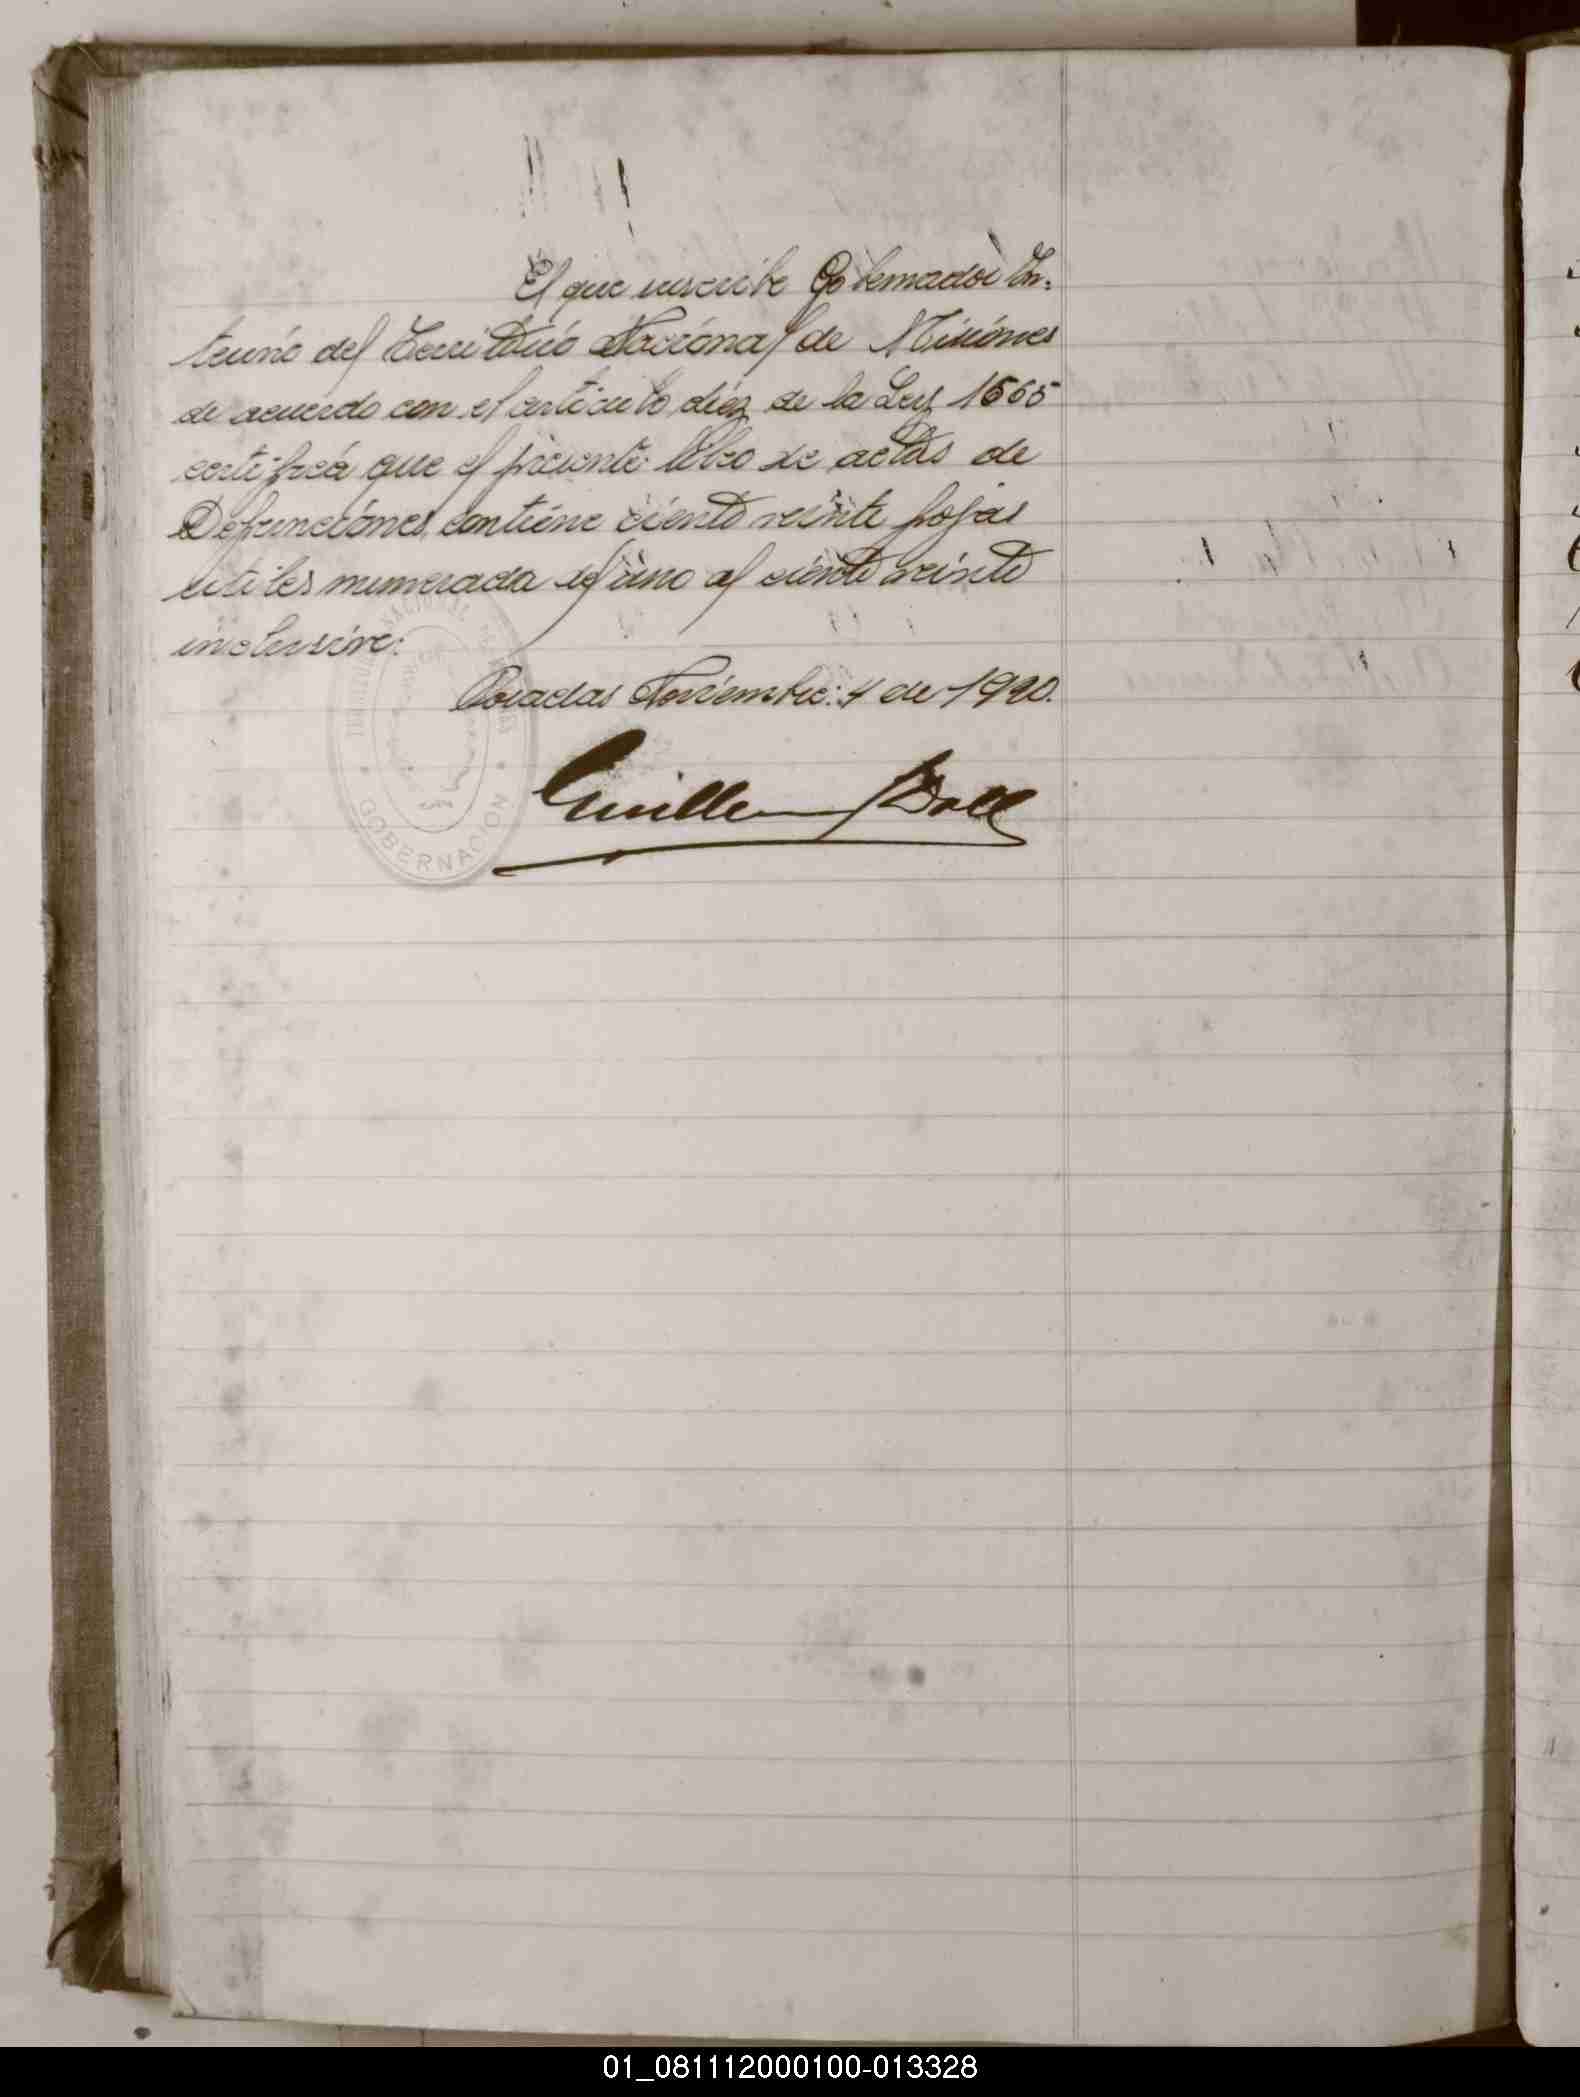 El que suscribe Gobernador In-
terino del Territorio Nacional de Misiones
de acuerdo con el articulo diez de la Ley 1565
certifica que el presente libro de actas de
Defunciones, contiene ciento veinte fojas
utiles numerada del uno al ciento veinte
inclusive.
Posadas Noviembre: 4 de 1920.
GOBERNACION
01_081112000100-013328